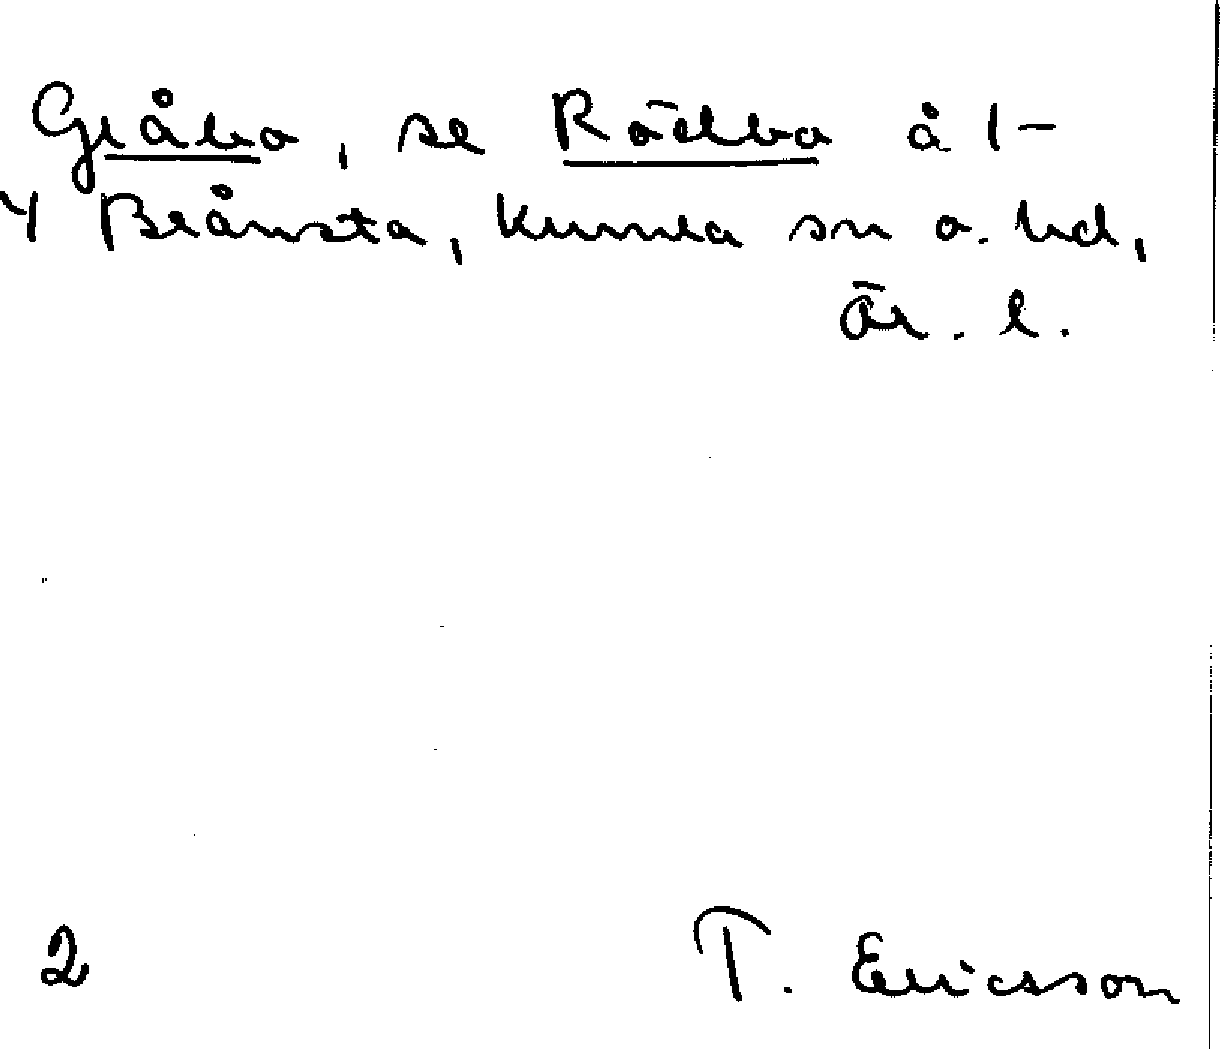 Gråbo, se Rödbo å 1-
4 Brånsta, Kumla sn o. hd,
Ör. l.
2
T. Ericsson